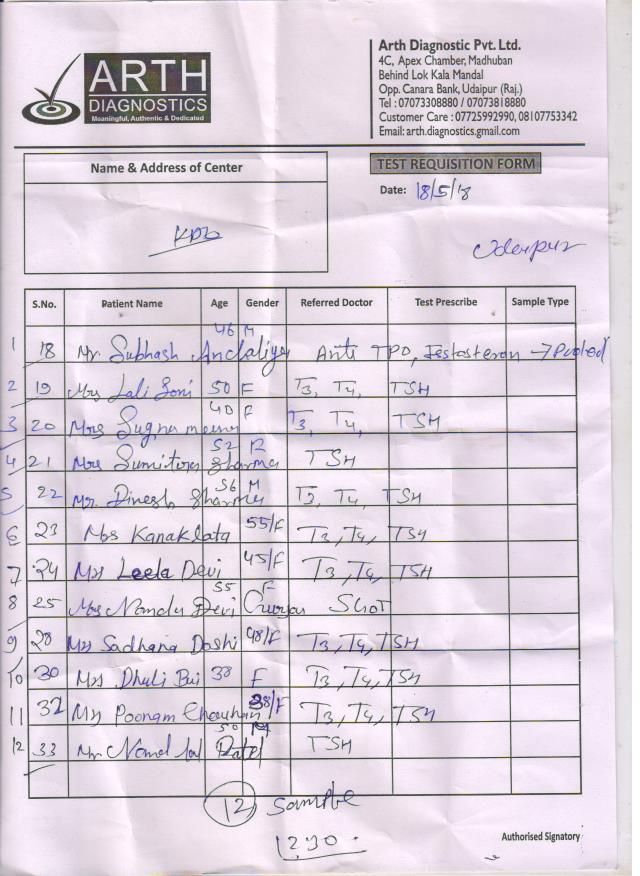 ARTH
DIAGNOSTICS
Meaningful, Authentic & Dedicated
Arth Diagnostic Pvt. Ltd.
4C, Apex Chamber, Madhuban
Behind Lok Kala Mandal
Opp. Canara Bank, Udaipur (Raj.)
Tel : 07073308880 / 07073818880
Customer Care : 07725992990, 08107753342
Email: arth.diagnostics.gmail.com
Name & Address of Center
TEST REQUISITION FORM
Date: 18/5/18
Udaipur
S.No. Patient Name Age Gender Referred Doctor Test Prescribe Sample Type
1 18 Mr Subhash 46 M Anti TPO, Testosteron → Pooled
2 19 Mrs Lali Soni 50 F T3, T4, TSH
3 20 Mrs Sugna meena 40 F T3, T4, TSH
4 21 Mrs Sumitra Sharma 52 F TSH
5 22 Mr. Dinesh Sharma 56 M T3, T4, TSH
6 23 Mrs Kanaklata 55/F T3, T4, TSH
7 24 Mrs Leela Devi 45/F T3, T4, TSH
8 25 Mrs Nandu Devi 55 F SGOT
9 28 Mrs Sadhana Doshi 48/F T3, T4, TSH
10 30 Mrs Dhuli Bai 38 F T3, T4, TSH
11 32 Mrs Poonam Chouhan 38/F T3, T4, TSH
12 33 Mr. Patel 50 M TSH
12 Sample
1230
Authorised Signatory